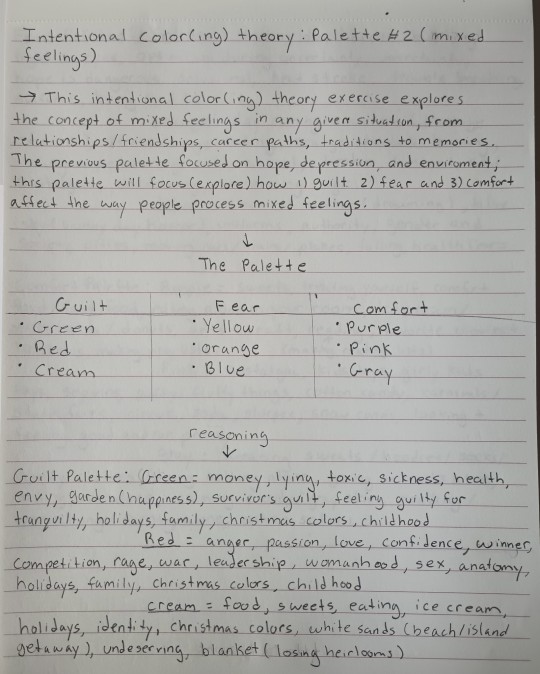 Intentional color(ing) theory: Palette #2 (mixed
feelings)
→ This intentional color(ing) theory exercise explores
the concept of mixed feelings in any given situation, from
relationships/friendships, career paths, traditions to memories.
The previous palette focused on hope, depression, and enviroment;
this palette will focus (explore) how 1) guilt 2) fear and 3) comfort
affect the way people process mixed feelings.
↓
The Palette
Guilt Fear Comfort
• Green • Yellow • Purple
• Red • orange • Pink
• Cream • Blue • Gray
reasoning
↓
Guilt Palette: Green = money, lying, toxic, sickness, health,
envy, garden (happiness), survivor's guilt, feeling guilty for
tranquilty, holidays, family, christmas colors, childhood
Red = anger, passion, love, confidence, winner,
competition, rage, war, leadership, womanhood, sex, anatomy,
holidays, family, christmas colors, childhood
cream = food, sweets, eating, ice cream,
holidays, identity, christmas colors, white sands (beach/island
getaway), undeserving, blanket (losing heirlooms)